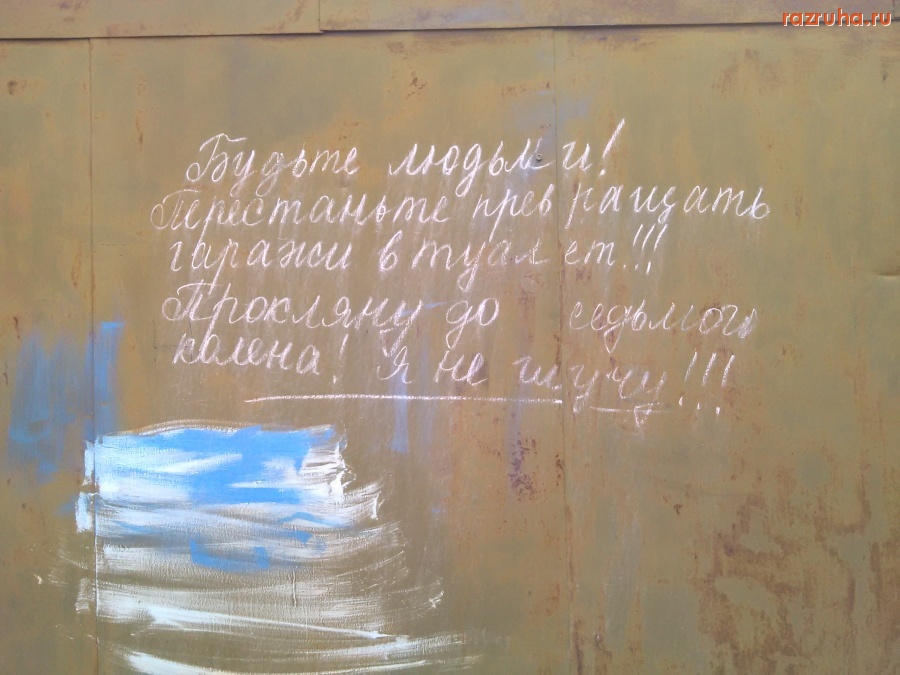 razruha.ru
Будьте людьми!
Перестаньте превращать
гаражи в туалет!!!
Прокляну до седьмого
колена! Я не шучу!!!